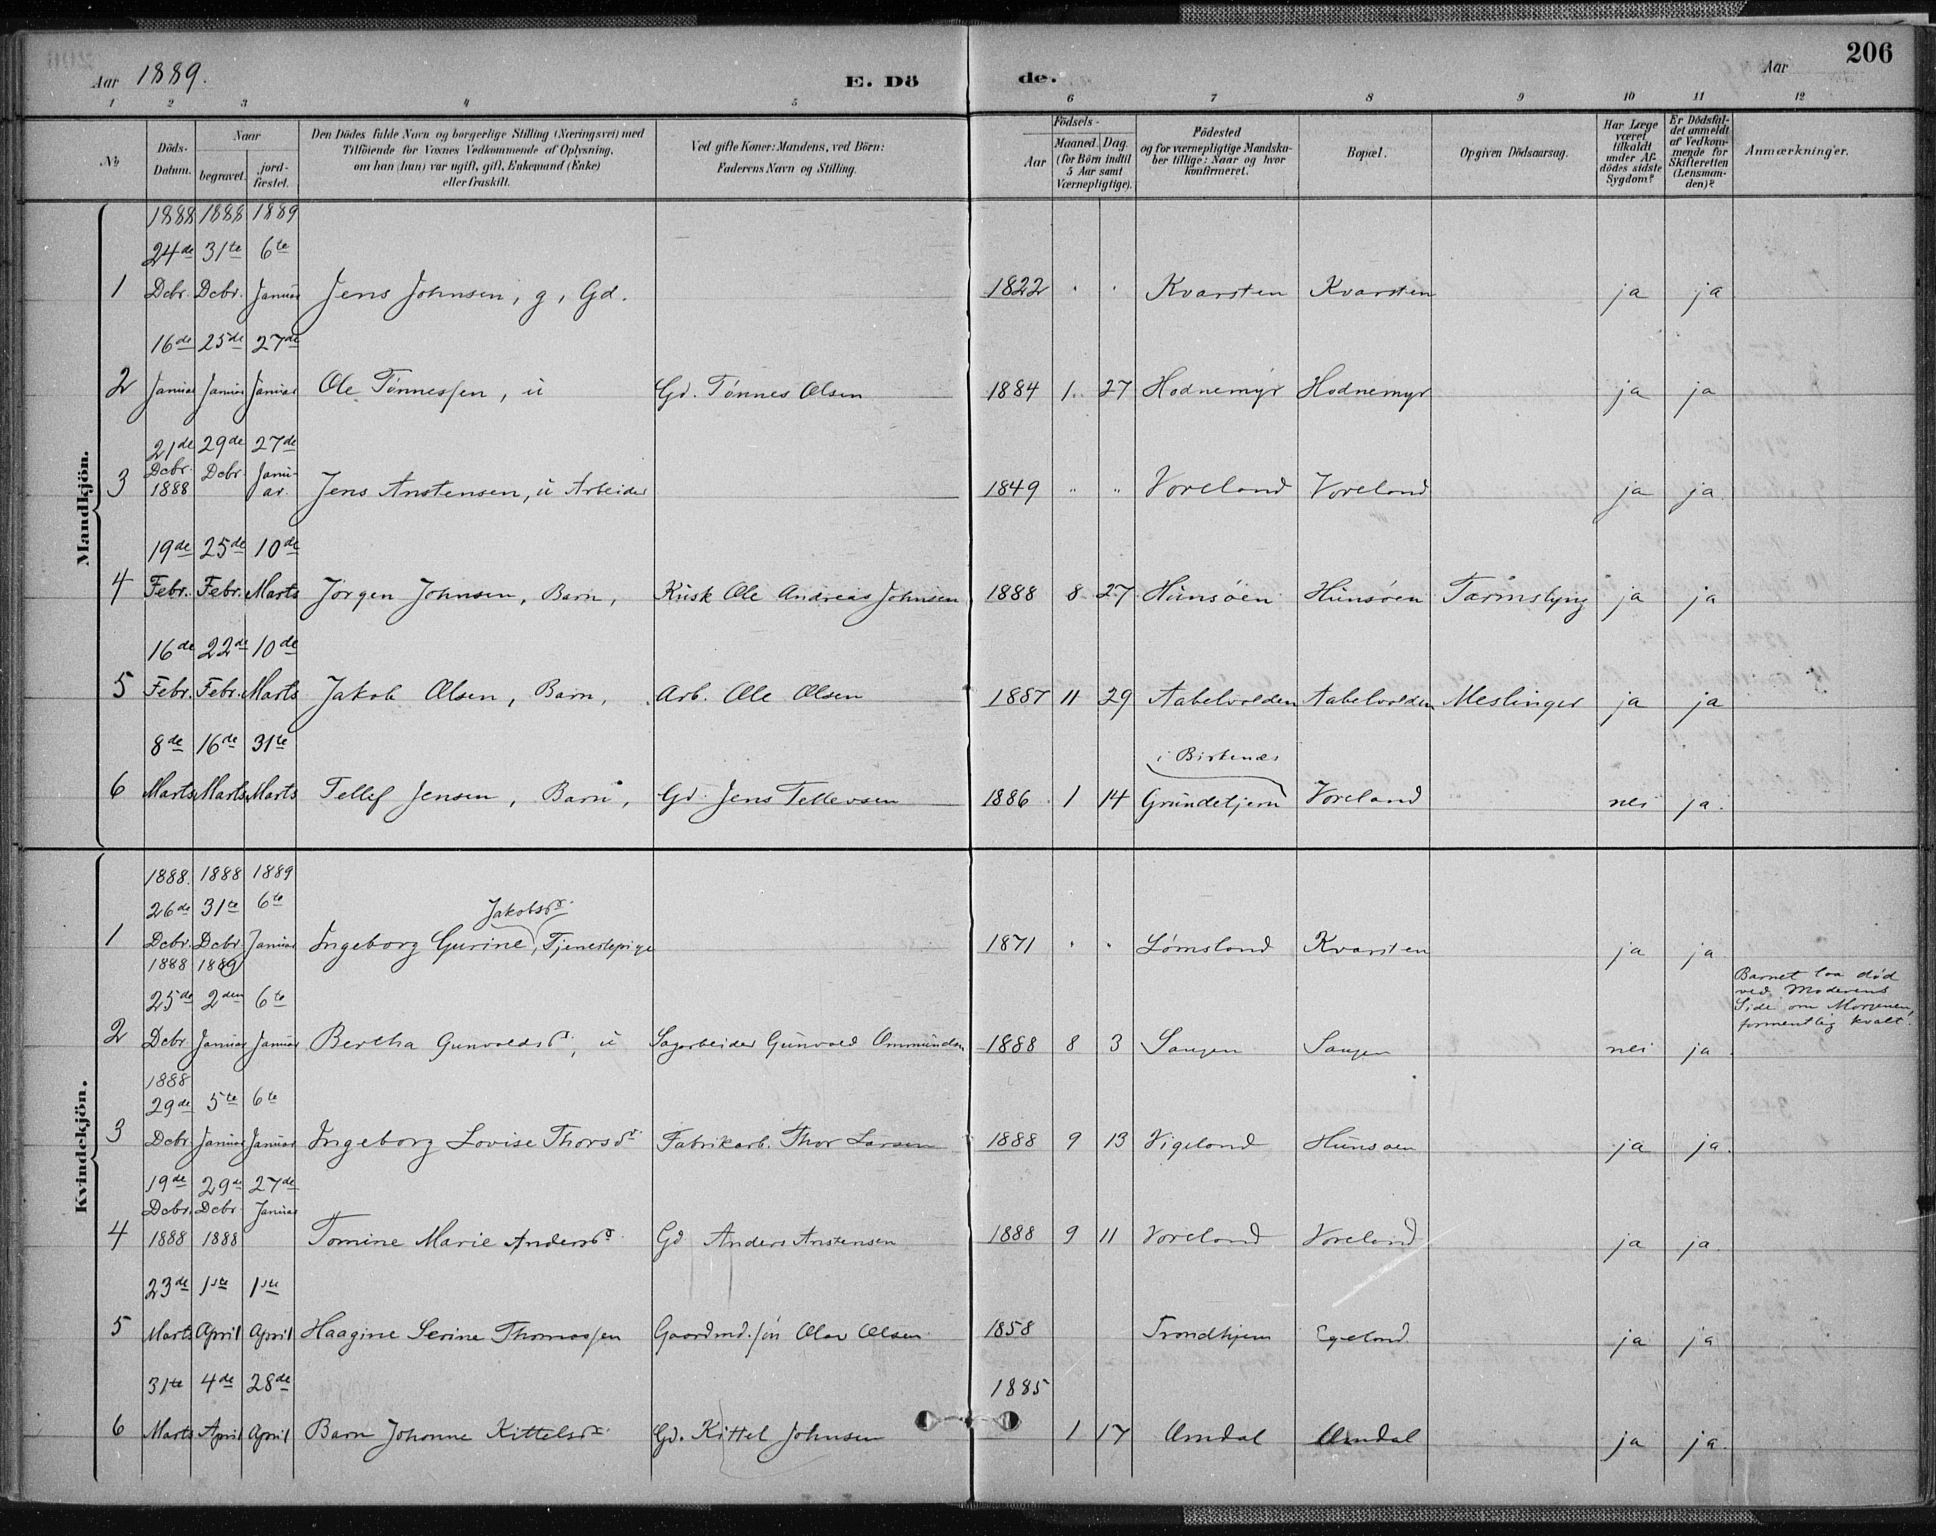 Aar 1889. E. Dö de. Aar 206
1 2 3 4 5 6 7 8 9 10 11 12
№ Döds-Datum. Naar begravet. jord-fæstet. Den Dödes fulde Navn og borgerlige Stilling (Næringsvei) med Tilföiende for Voxnes Vedkommende af Oplysning, om han (hun) var ugift, gift, Enkemand (Enke) eller fraskilt. Ved gifte Koner: Mandens, ved Börn: Faderens Navn og Stilling. Aar Födsels- Maaned. Dag. (for Börn indtil 5 Aar samt Værnepligtige). Födested og for værnepligtige Mandskaber tillige: Naar og hvor konfirmeret. Bopæl. Opgiven Dödsaarsag. Har Læge været tilkaldt under Afdödes sidste Sygdom? Er Dödsfaldet anmeldt af Vedkommende for Skifteretten (Lensmanden)? Anmærkninger.
Mandkjön.
1888 1888 1889
24de 31te 6te
1 Dcbr. Dcbr. Januar Jens Johnsen, g, Gd. 1822 " " Kvarsten Kvarsten ja ja
16de 25de 27de
2 Januar Januar Januar Ole Tønnessen, u Gd. Tønnes Olsen 1884 1 27 Hodnemyr Hodnemyr ja ja
21de 29de 27de
Dcbr. Dcbr. Janu-
3 1888 ar. Jens Anstensen, u Arbeider 1849 " " Voreland Voreland ja ja
19de 25de 10de
4 Febr. Febr. Marts Jørgen Johnsen, Barn, Kusk Ole Andreas Johnsen 1888 8 27 Hunsøen Hunsøen Tarmslyng ja ja
16de 22de 10de
5 Febr. Febr. Marts Jakob Olsen, Barn, Arb. Ole Olsen 1887 11 29 Aabelvolden Aabelvolden Meslinger ja ja
8de 16de 31te i Birkenæs
6 Marts Marts Marts Tellef Jensen, Barn, Gd. Jens Tellevsen 1886 1 14 Grundetjern Voreland nei ja.
Kvindekjön.
1888. 1888 1889
26de 31te 6te Jakobsd.
1 Dcbr. Dcbr. Januar Ingeborg Gurine, Tjenestepige 1871 " " Lømsland Kvarsten ja ja
1888 1889
25de 2den 6te
Barnet laa død
ved Moderens
Side om Morgenen,
formentlig kvalt.
2 Dcbr Januar Januar Bertha Gunvaldsd., u Sagarbeider Gunvald Ommundsen 1888 8 3 Saugen Saugen nei ja
1888
29de 5te 6te
3 Dcbr. Januar Januar Ingeborg Lovise Thorsd. Fabrikarb. Thor Larsen 1888 9 13 Vigeland Hunsøen ja ja.
19de 29de 27de
Dcbr. Dcbr. Januar
4 1888 1888 Tomine Marie Andersd. Gd Anders Anstensen 1888 9 11 Voreland Voreland ja ja.
23de 1ste 1ste
5 Marts April April Haagine Serine Thomassen Gaardmd. søn Olav Olsen 1858 Trondhjem Egeland ja ja
31te 4de 28de 1885
6 Marts April April Barn Johanne Kittelsd. Gd. Kittel Johnsen 1 17 Omdal Omdal ja ja.